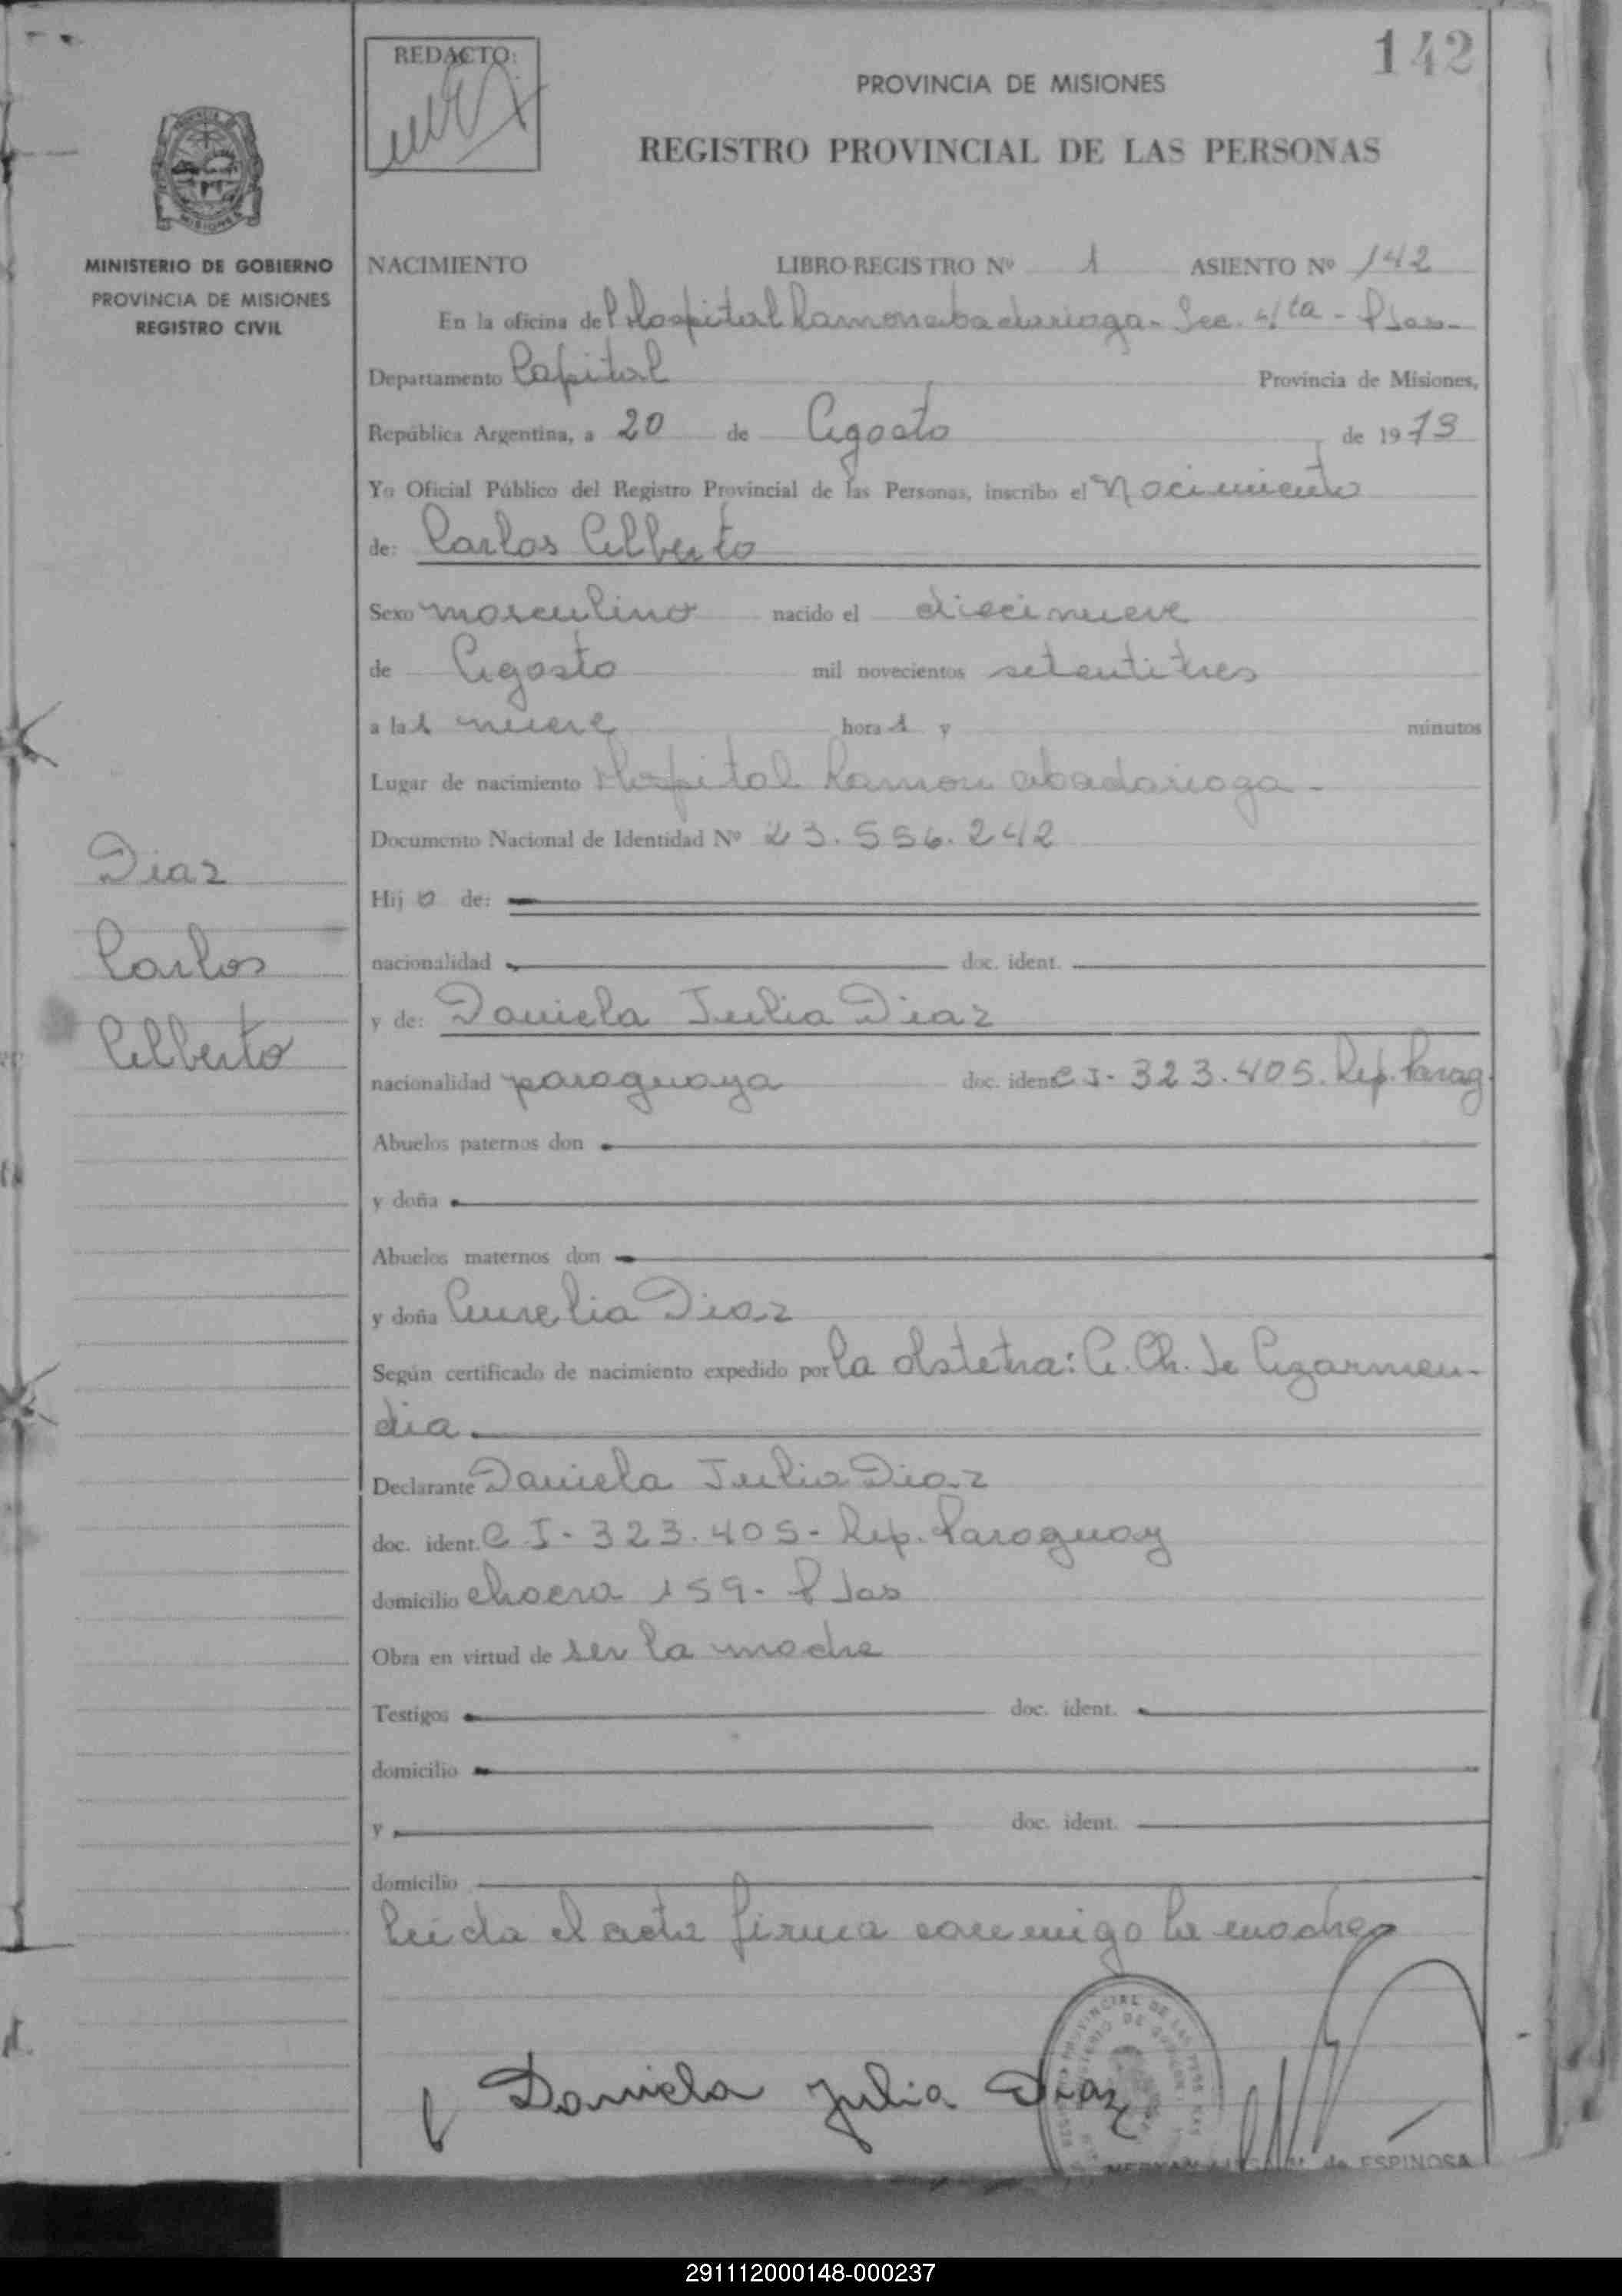 142
REDACTO:
PROVINCIA DE MISIONES
REGISTRO PROVINCIAL DE LAS PERSONAS
MISIONES
MINISTERIO DE GOBIERNO
PROVINCIA DE MISIONES
REGISTRO CIVIL
NACIMIENTO LIBRO-REGISTRO Nº 1 ASIENTO Nº 142
En la oficina del Hospital Ramon abadarioga - Sec. 4/ta - Psas -
Departamento Capital Provincia de Misiones,
República Argentina, a 20 de Agosto de 1973
Yo Oficial Público del Registro Provincial de las Personas, inscribo el Nacimiento
de: Carlos Alberto
Sexo masculino nacido el diecinueve
de Agosto mil novecientos setentitres
a las nueve horas y minutos
Lugar de nacimiento Hospital Ramon abadarioga -
Documento Nacional de Identidad Nº 23.556.242
Hijo de:
nacionalidad doc. ident.
y de: Daniela Julia Diaz
nacionalidad paraguaya doc. ident C I - 323.405. Rep. Parag.
Abuelos paternos don
y doña
Abuelos maternos don
y doña Aurelia Diaz
Según certificado de nacimiento expedido por la obstetra: A. Ch. de Agarmen-
dia.
Declarante Daniela Julia Diaz
doc. ident. C I - 323.405 - Rep. Paraguay
domicilio chacra 159 - Psas
Obra en virtud de ser la madre
Testigos doc. ident.
domicilio
y doc. ident.
domicilio
leida el acta firma conmigo la madre
Daniela Julia Diaz
de ESPINOSA
Diaz
Carlos
Alberto
291112000148-000237